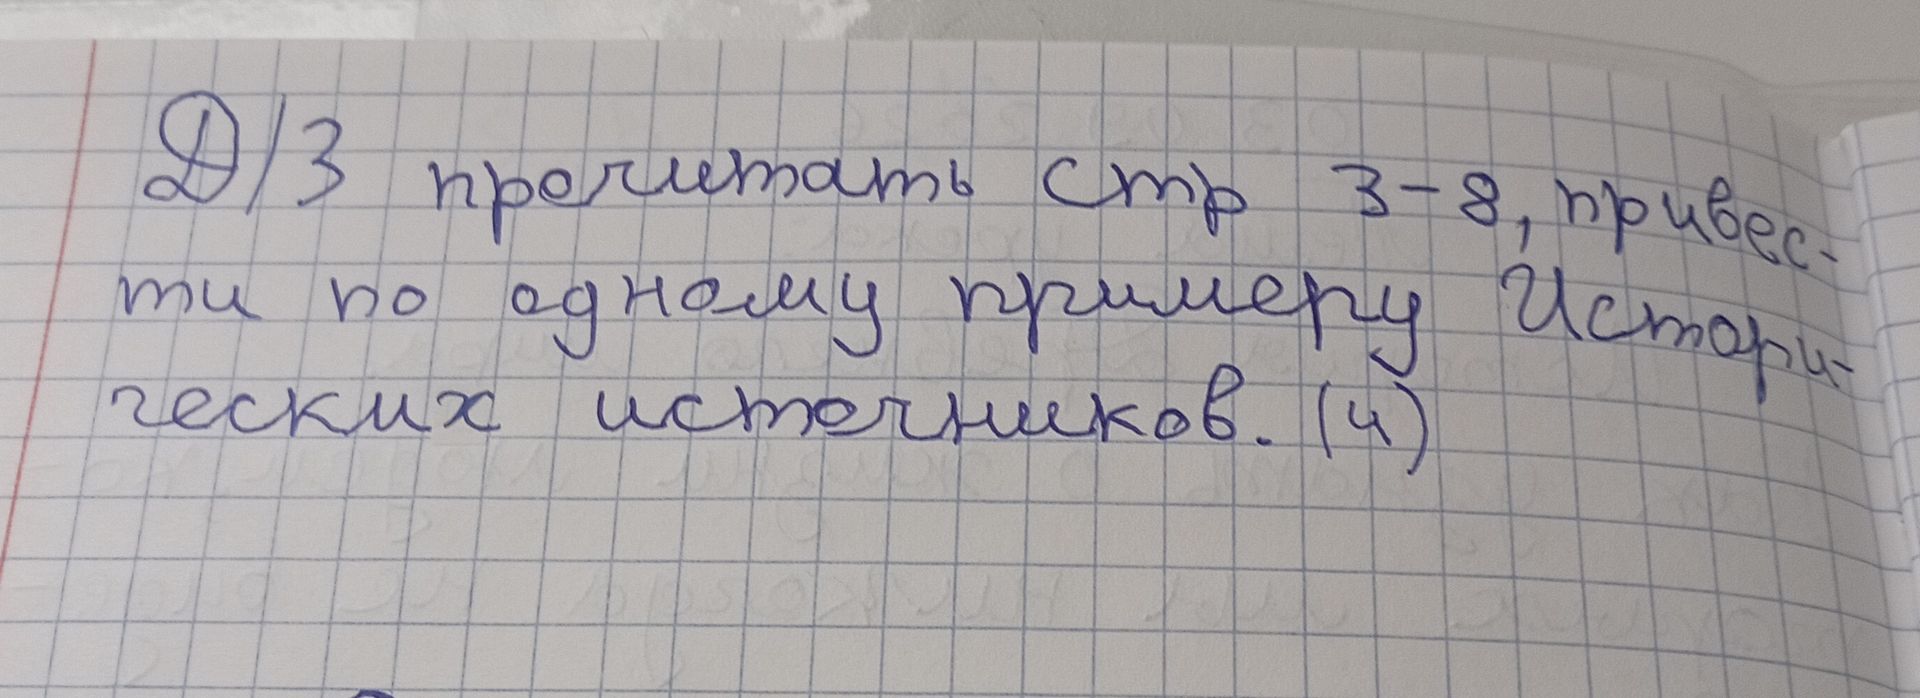 Д/З прочитать стр 3-8, привес-
ти по одному примеру Истори-
ческих источников. (4)